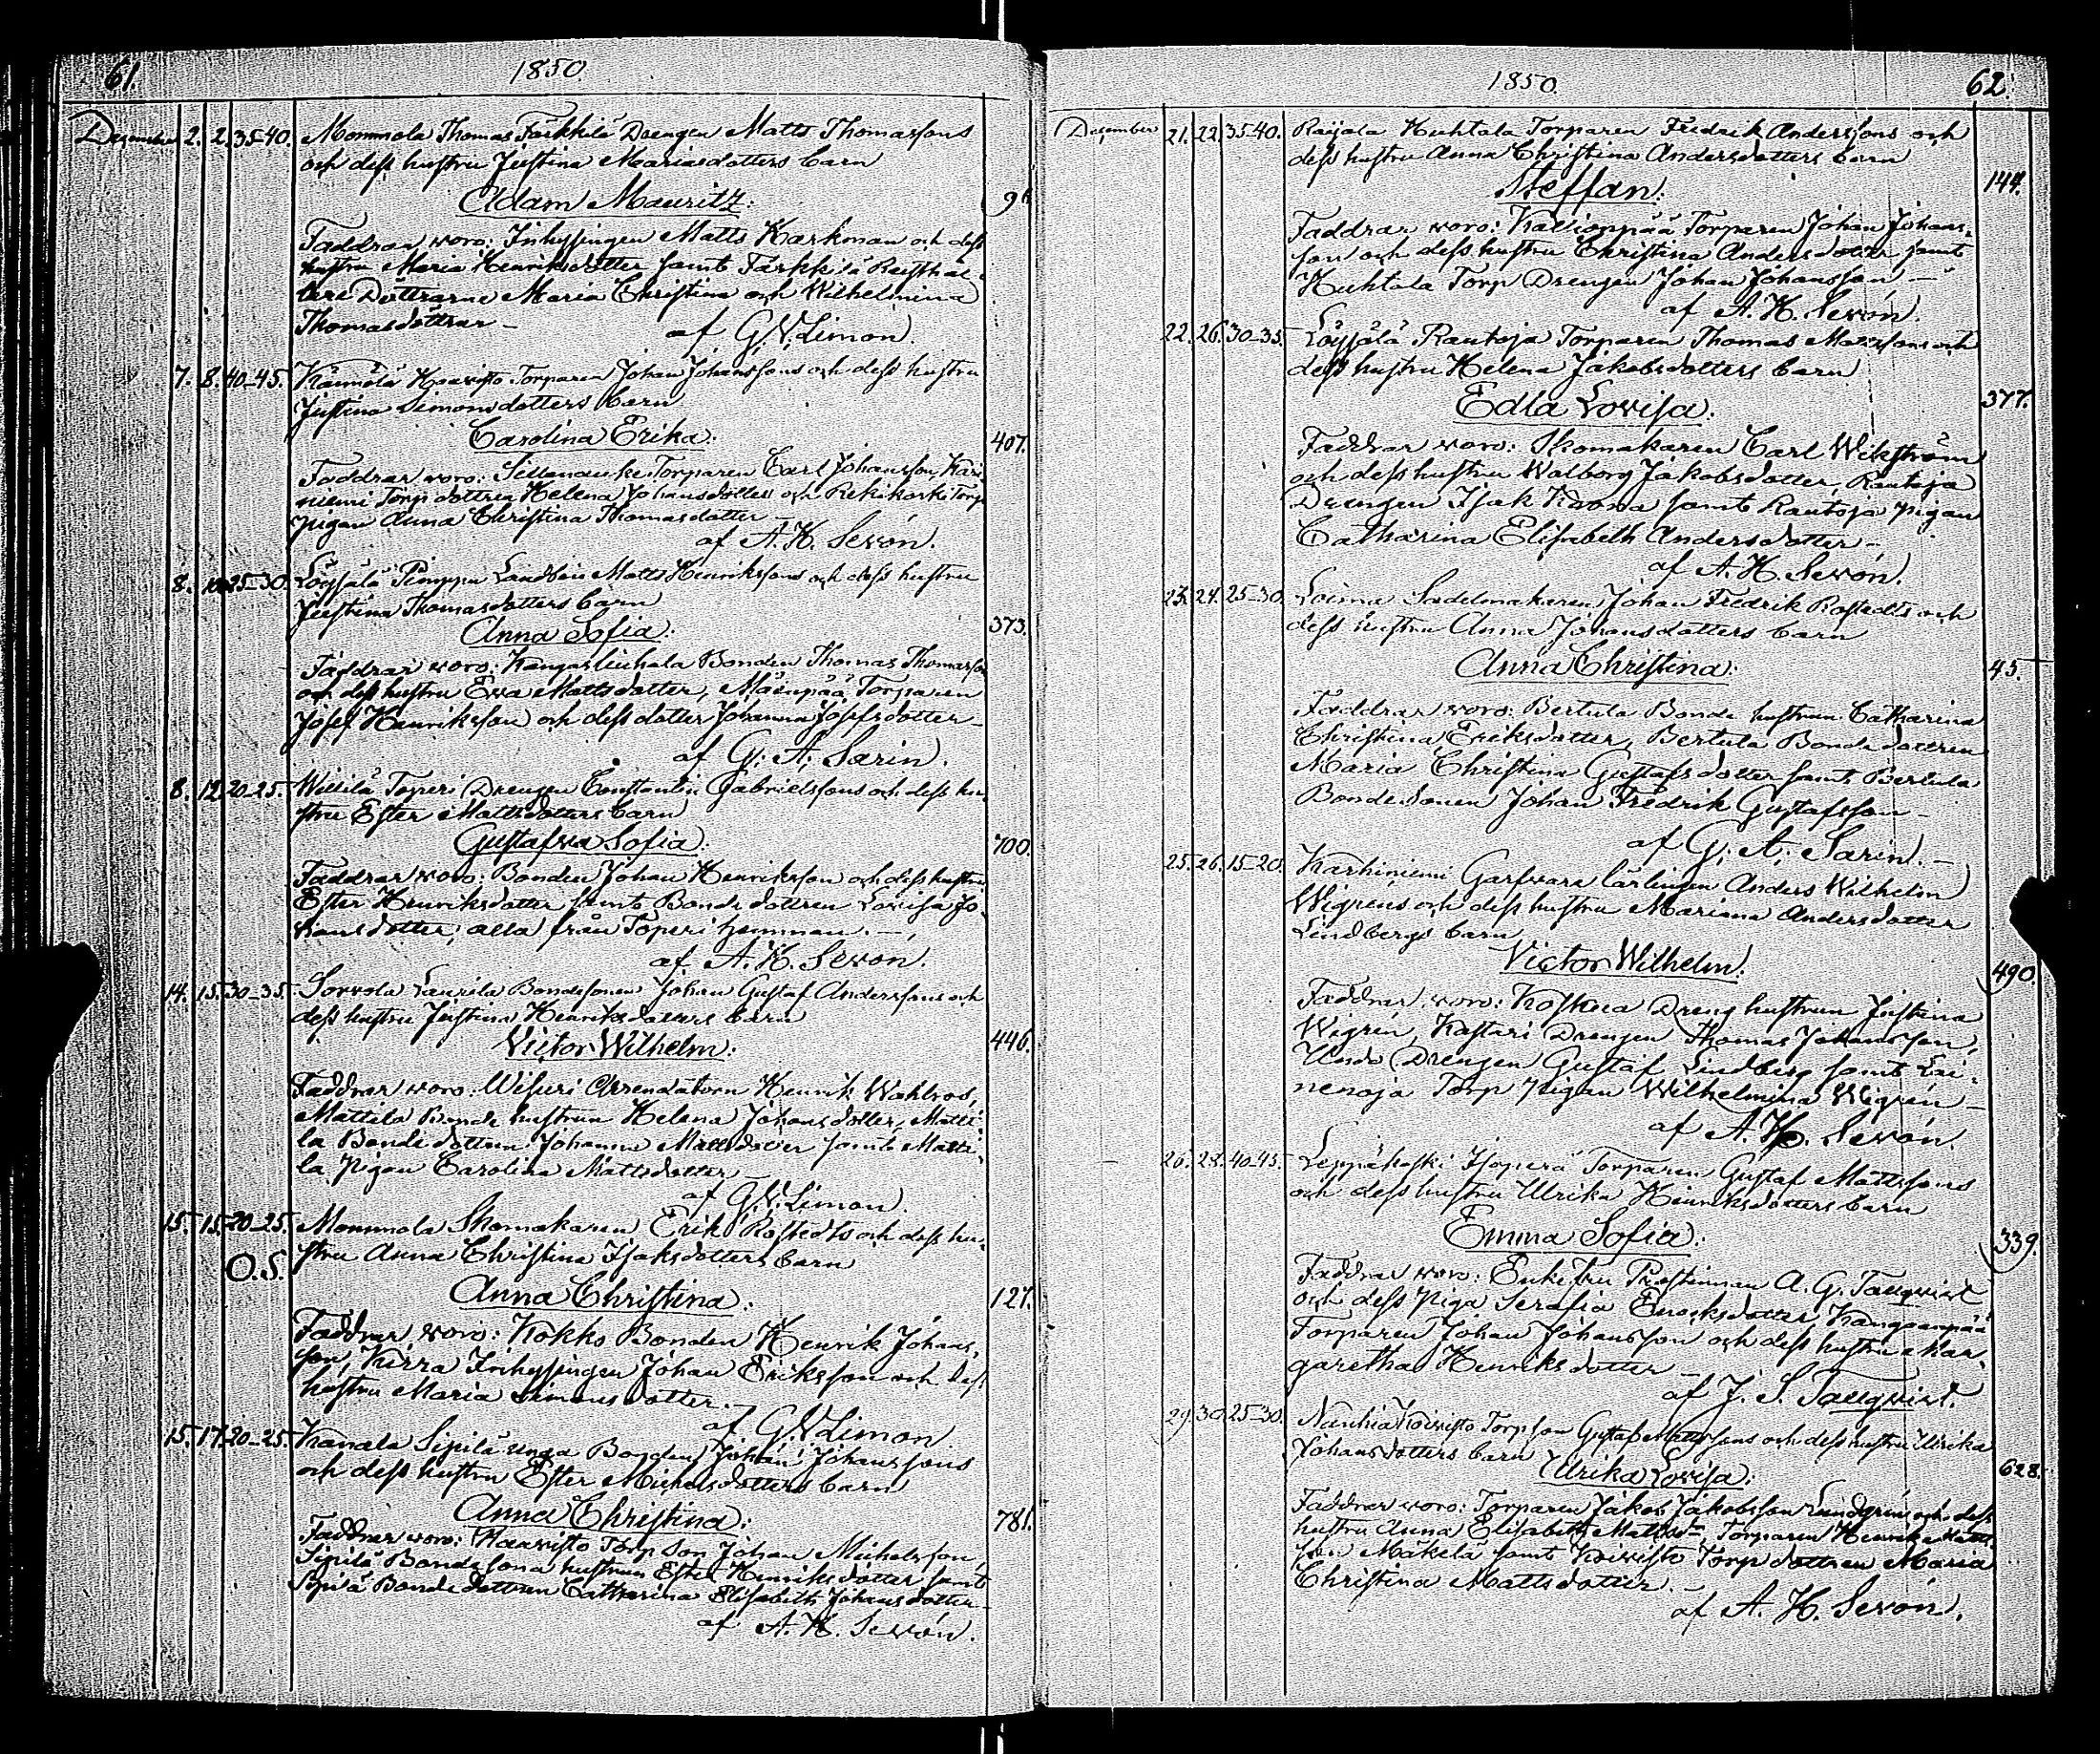 61.
1850.
Dezember 2. 2. 35-40. Mommola Thomas Färkkilä Drengen Matts Thomassons
och dess hustru Justina Mariasdotters barn
Adam Mauritz.
Faddrar woro: Inhysingen Matts Karkman och dess
hustru Maria Henriksdotter samt Färkkilä Rusthål-
lare Döttrarne Maria Christina och Wilhelmina
Thomasdöttrar –
af G. V. Limon.
7. 8. 40-45. Torparen Johan Johanssons och dess hustru
Justina Simonsdotters barn
Carolina Erika.
407.
Faddrar woro: Torparen Carl Johansson, Kari-
niemi Torp dottren Helena Johansdotter och Rekikoski Torp
pigan Anna Christina Thomasdotter –
af A. H. Sevón.
8. 25-30. Löysälä Pimppu Landbon Matts Henrikssons och dess hustru
Justina Thomasdotters barn
Anna Sofia.
373.
Faddrar woro: Bonden Thomas Thomasson
och dess hustru Ewa Mattsdotter, Mäenpää Torparen
Josef Henriksson och dess dotter Johanna Josefsdotter –
af G. A. Sarin.
8. 12. 20-25. Willilä Toperi Drengen Constantin Gabrielssons och dess hu-
stru Ester Mattsdotters barn
Gustafwa Sofia.
700.
Faddrar woro: Bonden Johan Henriksson och dess hustru
Ester Henriksdotter samt Bonde dottren Lovisa Jo-
hansdotter, alla från Toperi hemman. –
af A. H. Sevón.
14. 15. 30-35. Sorvola Laurila Bondesonen Johan Gustaf Anderssons och
dess hustru Justina Henriksdotters barn
Victor Wilhelm.
446.
Faddrar woro: Wisuri Arrendatorn Henrik Wahlros,
Mattila Bonde hustrun Helena Johansdotter, Matti-
la Bonde dottren Johanna Mattsdotter samt Matti-
la Pigan Carolina Mattsdotter
af G. V. Limon.
15. 15. 20-25. Mommola Skomakaren Erik Rostedts och dess hu-
O. S. stru Anna Christina Isaksdotters barn
Anna Christina.
127.
Faddrar woro: Kokko Bonden Henrik Johans-
son, Kirra Inhysingen Johan Eriksson och dess
hustru Maria Simonsdotter. –
af G. V. Limon
15. 17. 20-25. Kanala Sipilä unga Bonden Johan Johanssons
och dess hustru Ester Michelsdotters barn
Anna Christina.
781.
Faddrar woro: Torp son Johan Michelsson,
Sipilä Bondesona hustrun Ester Henriksdotter samt
Sipilä Bonde dottren Catharina Elisabeth Johansdotter –
af A. H. Sevón.
1850.
62.
Dezember 21. 22. 35-40. Raijala Huhtala Torparen Fredrik Anderssons och
dess hustru Anna Christina Andersdotters barn
Steffan.
144.
Faddrar woro: Kallioppää Torparen Johan Johans-
son och dess hustru Christina Andersdotter samt
Huhtala Torp Drengen Johan Johansson –
af A. H. Sevón.
22. 26. 30-35. Löysälä Rautoja Torparen Thomas Matssons och
dess hustru Helena Jakobsdotters barn
Edla Lovisa.
377.
Faddrar woro: Skomakaren Carl Wikström
och dess hustru Walborg Jakobsdotter, Rautoja
Drengen Isak samt Rautoja pigan
Catharina Elisabeth Andersdotter –
af A. H. Sevón.
23. 24. 25-30. Loima Sadelmakaren Johan Fredrik Rostedts och
dess hustru Anna Johansdotters barn
Anna Christina.
45.
Faddrar woro: Bertula Bonde hustrun Catharina
Christina Eriksdotter, Bertula Bonde dottren
Maria Christina Gustafsdotter samt Bertula
Bonde sonen Johan Fredrik Gustafsson –
af G. A. Sarin. –
25. 26. 15-20. Karhiniemi Garfware lärlingen Anders Wilhelm
Wigrens och dess hustru Mariana Andersdotter
Lindbergs barn
Victor Wilhelm.
490.
Faddrar woro: Koskena Dreng hustrun Justina
Wigrén, Kastari Drengen Thomas Johansson,
Undo Drengen Gustaf Lindberg samt Lai-
nenoja Torp pigan Wilhelmina Wigrén –
af A. H. Sevón
26. 28. 40-45. Leppäkoski Isoperä Torparen Gustaf Mattssons
och dess hustru Ulrika Henriksdotters barn
Emma Sofia.
339.
Faddrar woro: Enkefru Prostinnan A. G. Tauqvist
och dess Piga Serafia Enoksdotter, Kangaanpää
Torparen Johan Johansson och dess hustru Mar-
garetha Henriksdotter –
af J. S. Tauqvist.
29. 30. 25-30. Koivisto Torp son Gustaf Mattssons och dess hustru Ulrika
Johansdotters barn
Ulrika Lovisa.
628.
Faddrar woro: Torparen Jakob Jakobsson Lundgrén och dess
hustru Anna Elisabeth Torparen Henrik Matts-
son Mäkelä samt Koivisto Torp dottren Maria
Christina Mattsdotter. –
af A. H. Sevón.